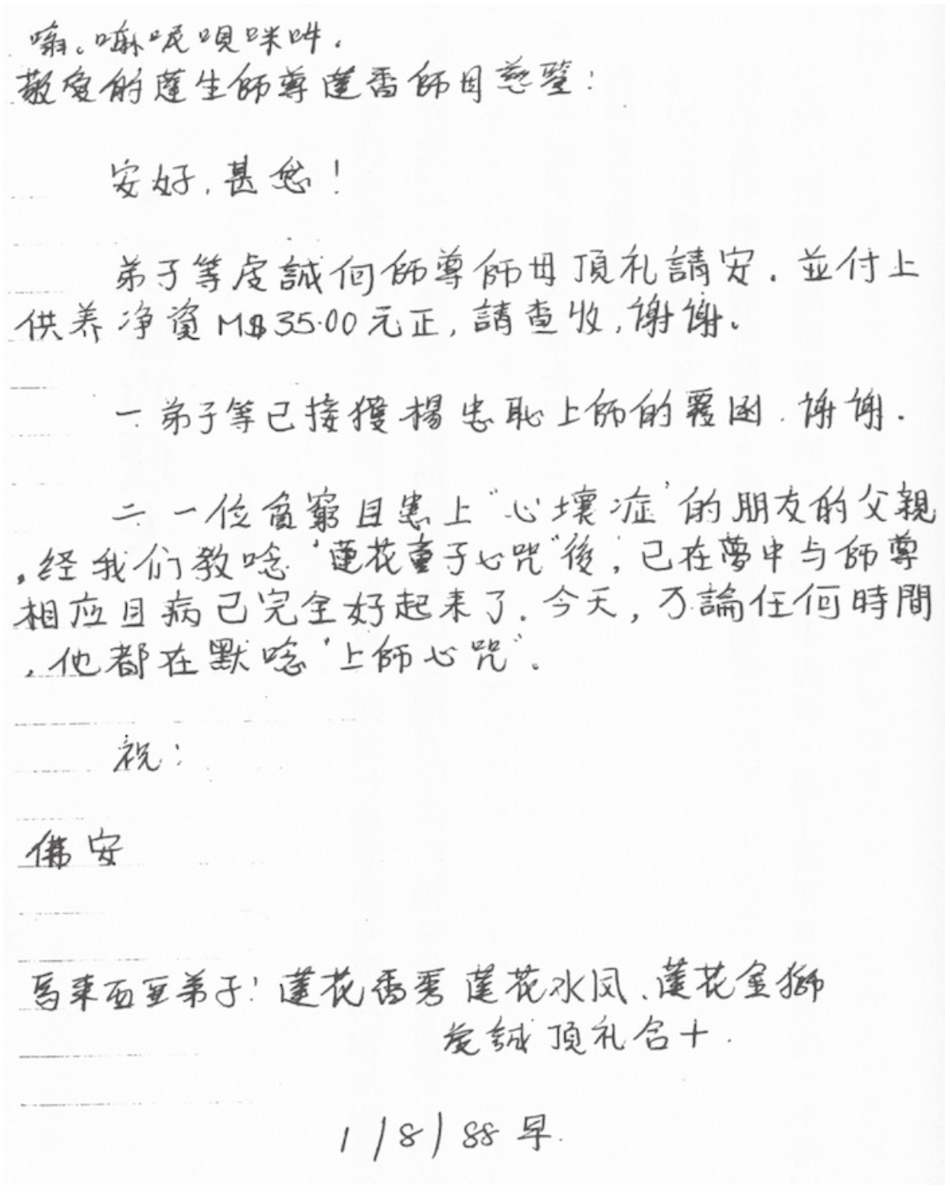 嗡。嘛呢唄咪吽.
敬愛的蓮生師尊蓮香師母慈鑒:
安好.甚念!
弟子等虔誠向師尊師母頂礼請安.並付上
供养净資M$35.00元正,請查收,谢谢。
一.弟子等已接獲楊忠恥上師的覆函.谢谢.
二.一位貧窮且患上"心壞症"的朋友的父親
,经我们教唸"蓮花童子心咒"後,已在夢中与師尊
相应且病已完全好起来了.今天,不論任何時間
,他都在默唸"上師心咒".
祝:
佛安
馬来西亚弟子:蓮花香秀 蓮花水凤、蓮花金獅
虔誠頂礼合十.
1/8/88 早.